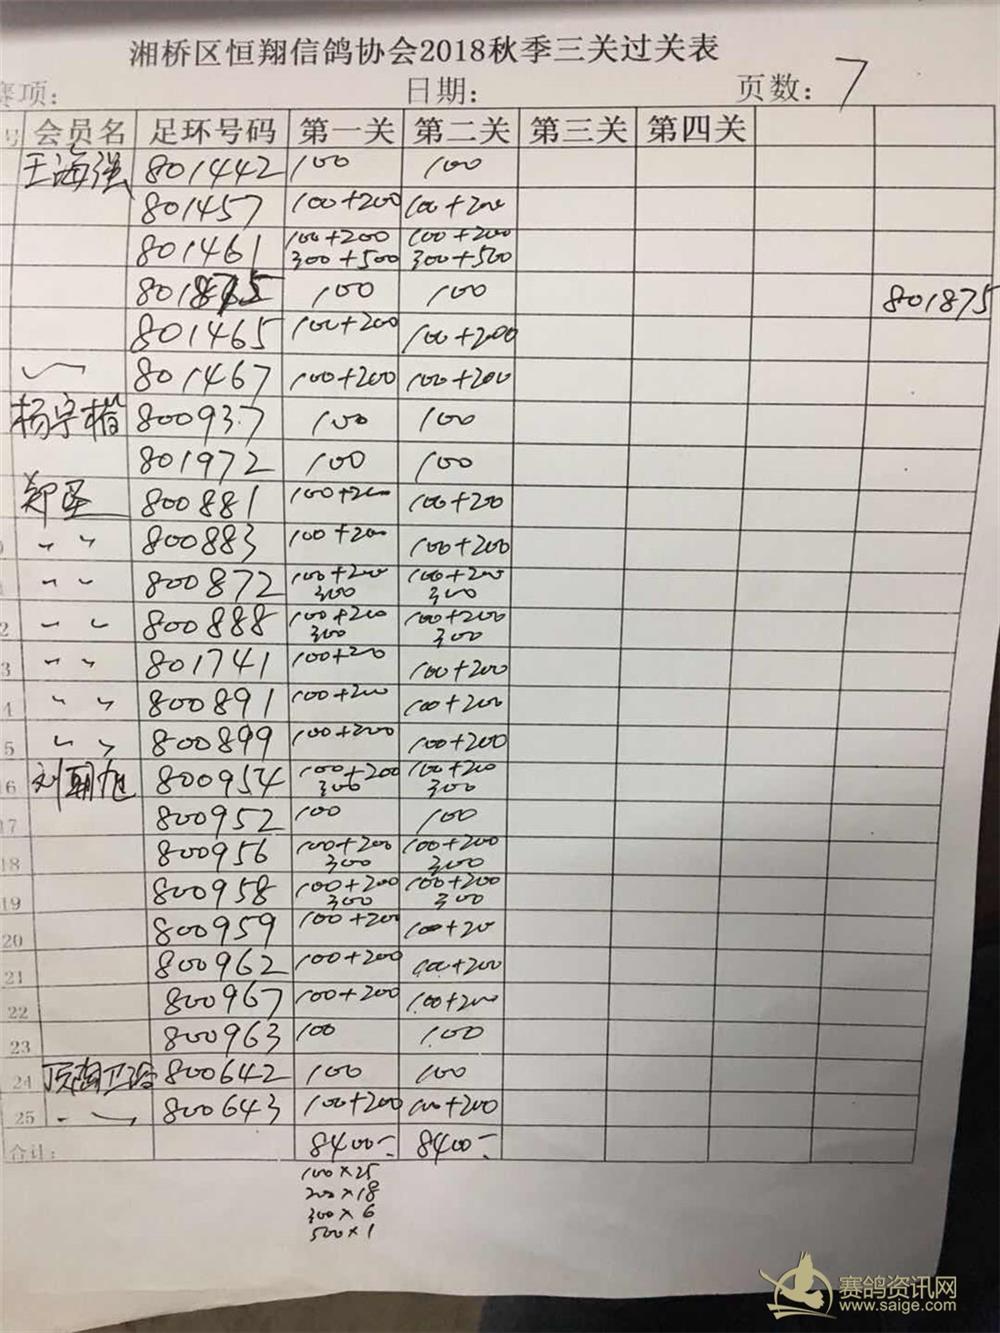 湘桥区恒翔信鸽协会2018秋季三关过关表
赛项: 日期: 页数: 7
号 会员名 足环号码 第一关 第二关 第三关 第四关
王海强 801442 100 100
801457 100+200 100+200
801461 100+200 100+200
300+500 300+500
100 100 801875
801465 100+200 100+200
801467 100+200 100+200
杨宇楷 800937 100 100
801972 100 100
郑圣 800881 100+200 100+200
0 〃 〃 800883 100+200 100+200
1 〃 〃 800872 100+200 100+200
300 300
2 〃 〃 800888 100+200 100+200
300 300
3 〃 〃 801741 100+200 100+200
4 〃 〃 800891 100+200 100+200
5 〃 〃 800899 100+200 100+200
16 刘朝旭 800954 100+200 100+200
300 300
17 800952 100 100
18 800956 100+200 100+200
300 300
19 800958 100+200 100+200
300 300
20 800959 100+200 100+20
21 800962 100+200 100+200
22 800967 100+200 100+200
23 800963 100 100
24 800642 100 100
25 800643 100+200 100+200
合计: 8400- 8400-
100×25
200×18
300×6
500×1
赛鸽资讯网
www.saige.com